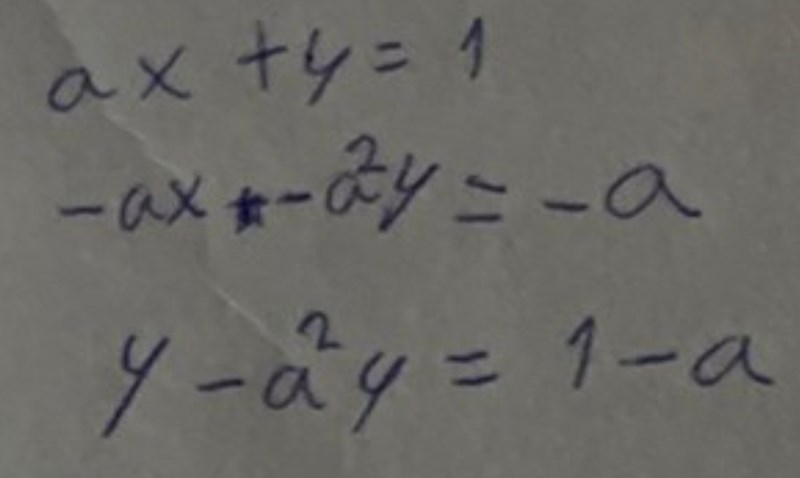 ax + y = 1
-ax - a²y = -a
y - a²y = 1 - a